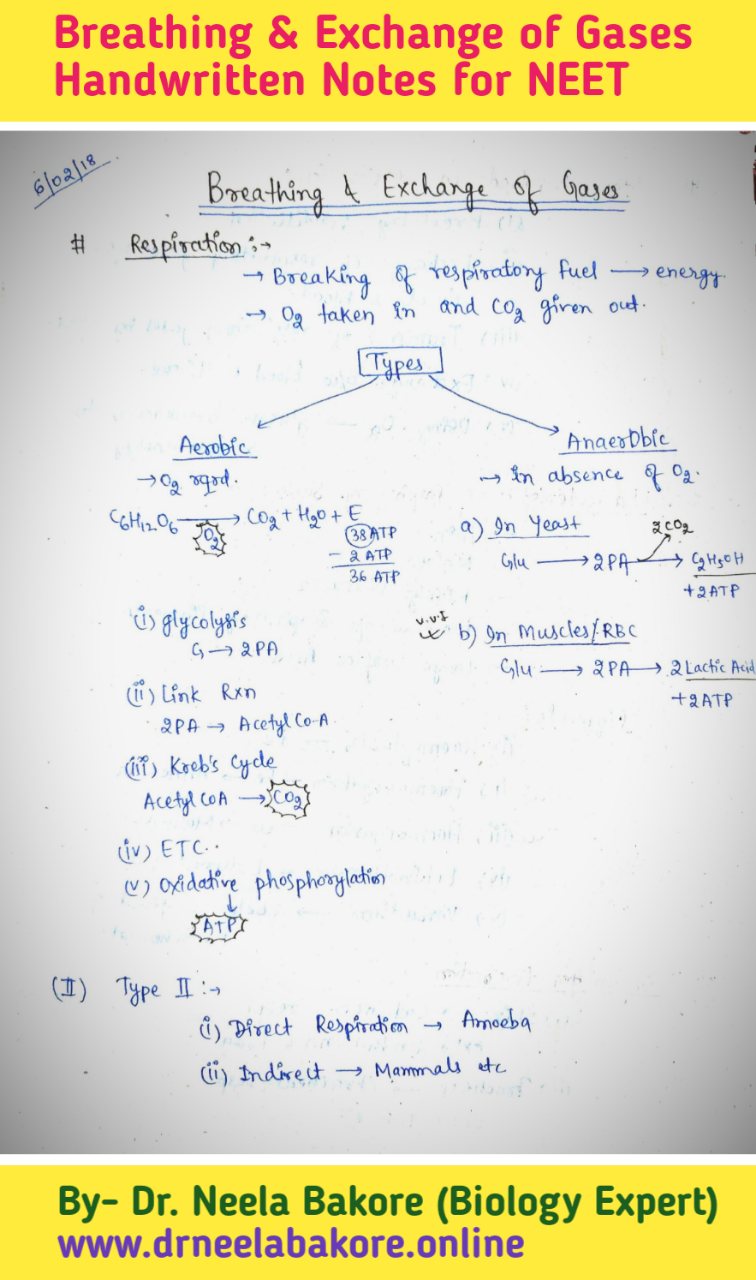 Breathing & Exchange of Gases
Handwritten Notes for NEET
6/02/18
Breathing & Exchange of Gases.
# Respiration :→
→ Breaking of respiratory fuel → energy.
→ O2 taken in and CO2 given out.
Types
Aerobic
→ O2 rqrd.
C6H12O6 → CO2 + H2O + E
O2
38 ATP
- 2 ATP
36 ATP
(i) glycolysis
G → 2PA
(ii) Link Rxn
2PA → Acetyl Co-A.
(iii) Kreb's Cycle
Acetyl CoA → CO2
(iv) ETC..
(v) Oxidative phosphorylation
↓
ATP
Anaerobic
→ In absence of O2.
a) In Yeast
2CO2
Glu → 2PA → C2H5OH
+2ATP
v.v.I
b) In Muscles/RBC
Glu → 2PA → 2 Lactic Acid
+2ATP
(II) Type II :→
(i) Direct Respiration → Amoeba
(ii) Indirect → Mammals etc
By- Dr. Neela Bakore (Biology Expert)
www.drneelabakore.online